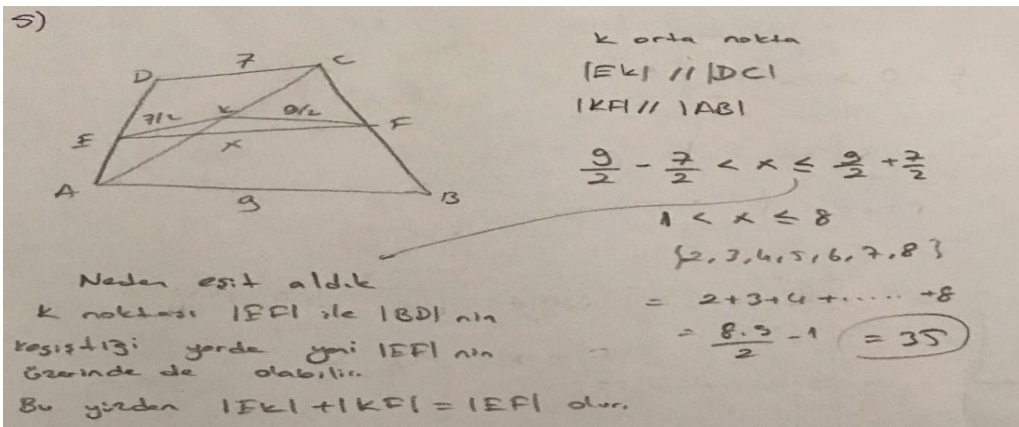 5)
D 7 C
7/2 K 9/2
E x F
A 9 B
K orta nokta
|EK| // |DC|
|KF| // |AB|
9/2 - 7/2 < x ≤ 9/2 + 7/2
1 < x ≤ 8
{2,3,4,5,6,7,8}
= 2+3+4+.....+8
= 8.9/2 - 1 = 35
Neden eşit aldık
K noktası |EF| ile |BD| nin
kesiştiği yerde yani |EF| nin
üzerinde de olabilir.
Bu yüzden |EK| + |KF| = |EF| olur.